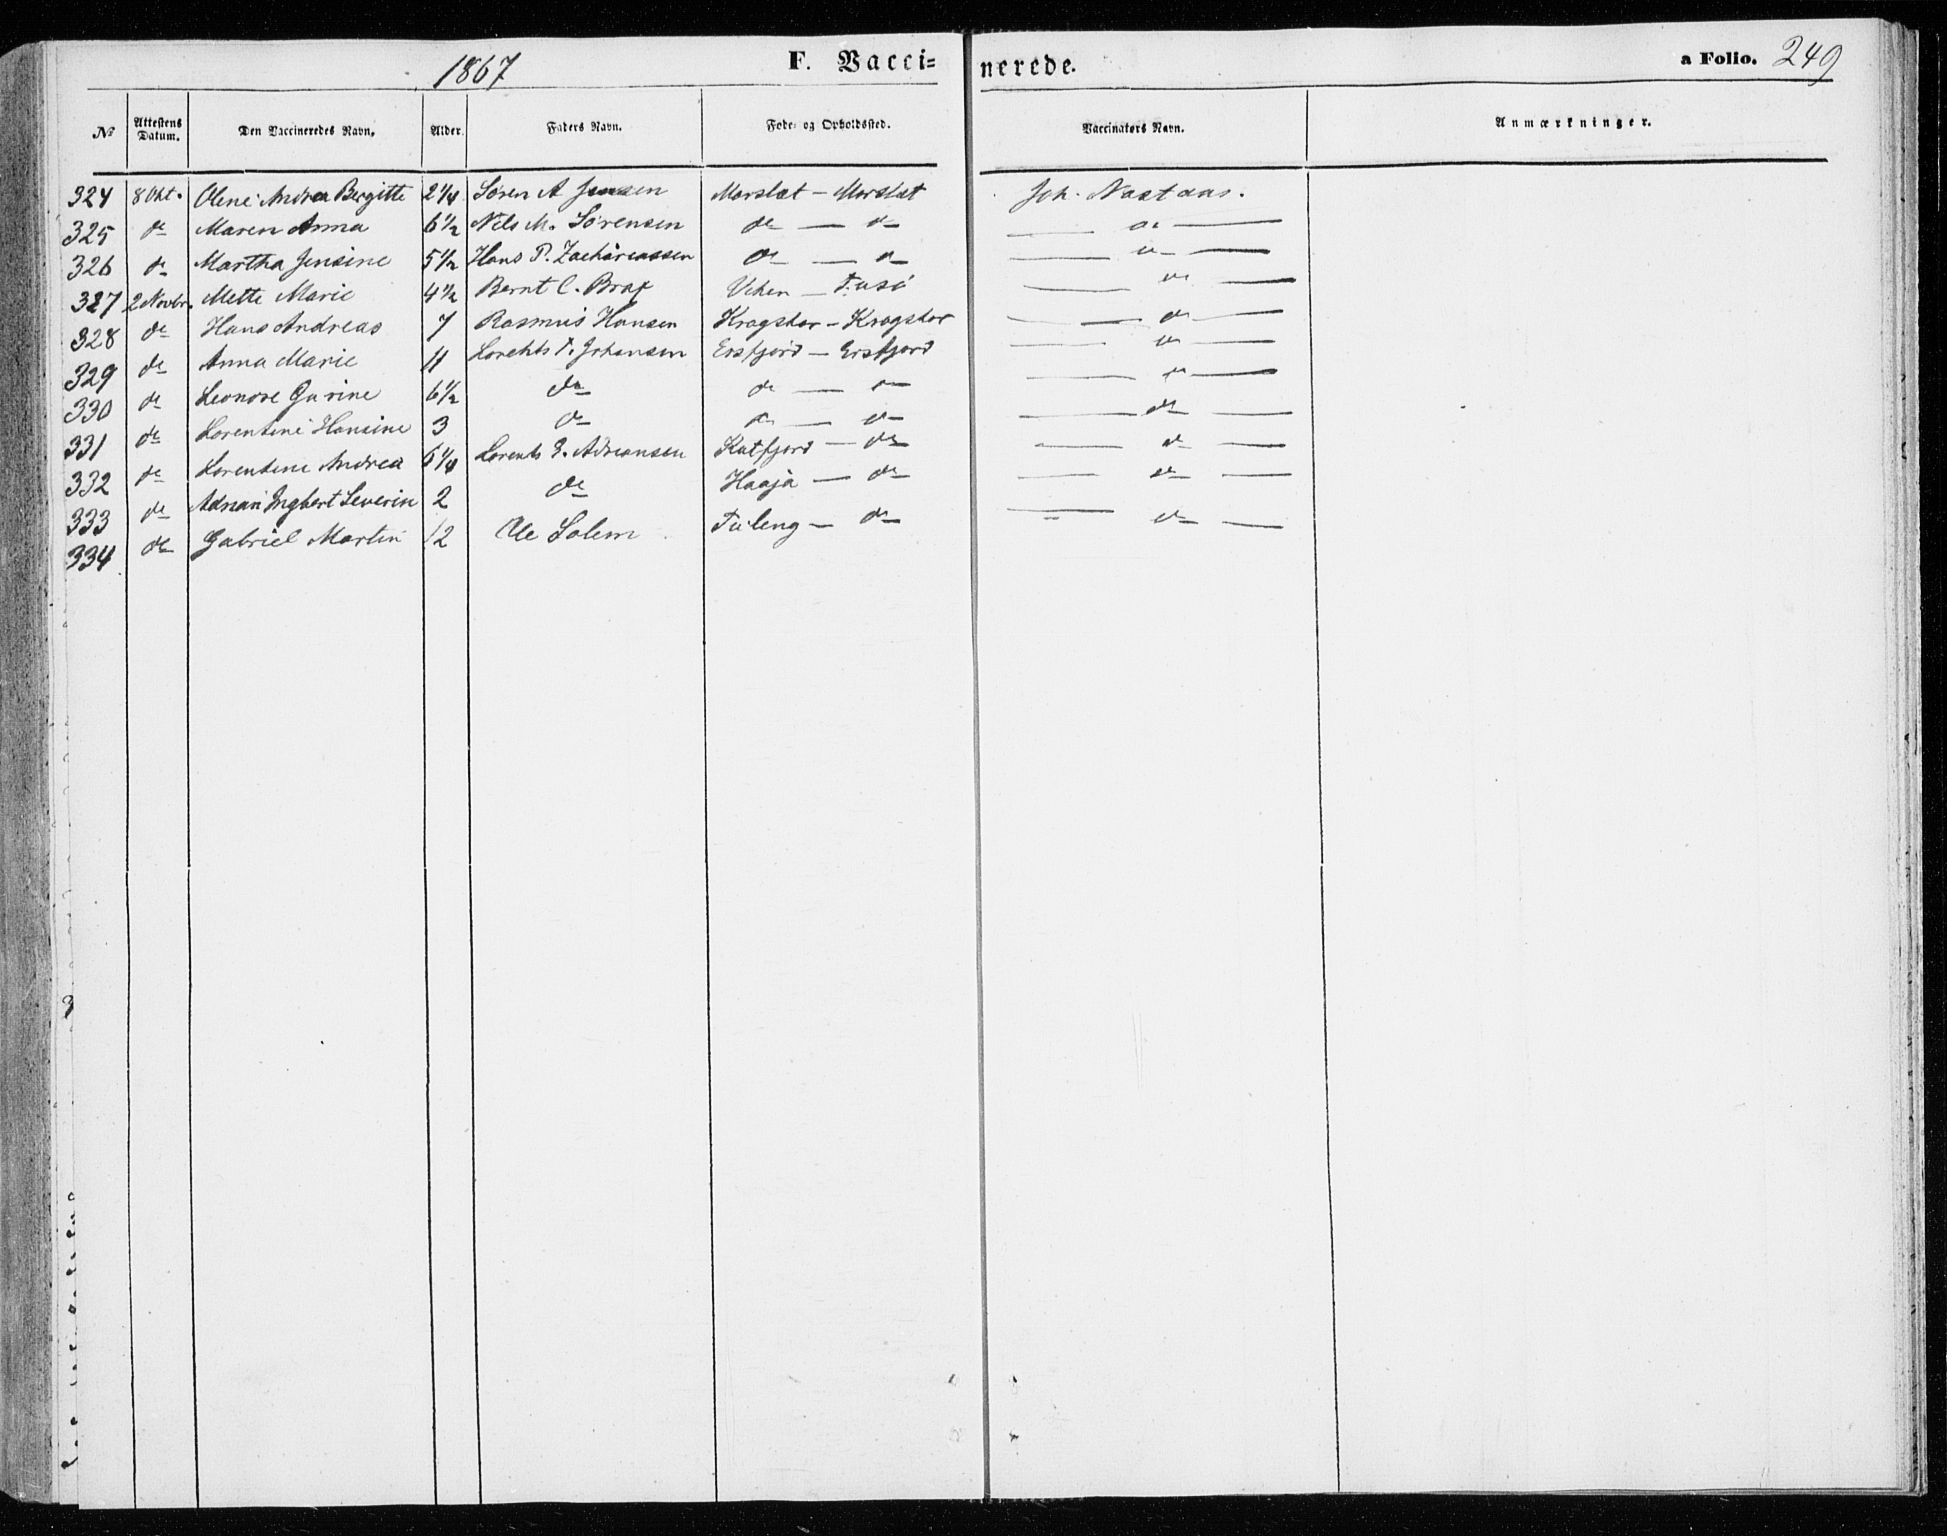 1867 F. Vacci= nerede. a Folio. 249
No Attestens Datum. Den Vaccineredes Navn. Alder. Faders Navn. Føde- og Opholdssted. Vaccinatørs Navn. Anmærkninger.
324 8 Okt. Oline Andrea Bergitte 2 1/4 Søren A Jensen Marslet — Marslet Joh. Nastaas.
325 do Maren Anna 6 1/2 Nils M. Sørensen do — do — do —
326 do Martha Jensine 5 1/2 Hans P. Zachariassen do — do — do —
327 2 Novbr. Mette Marie 4 1/2 Bernt C. Brox Viken — Tusø — do —
328 do Hans Andreas 7 Rasmus Hansen Kragskor — Kragskor — do —
329 do Anna Marie 11 Lorents F. Johansen Ersfjord — Ersfjord — do —
330 do Leonore Gurine 6 1/2 do do — do — do —
331 do Lorentine Hansine 3 do do — do — do —
332 do Lorentine Andrea 6 1/4 Lorents E. Adriansen Katfjord — do — do —
333 do Adrian Ingbert Severin 2 do Haaja — do — do —
334 do Gabriel Martin 12 Ole Solem Tuleng — do — do —